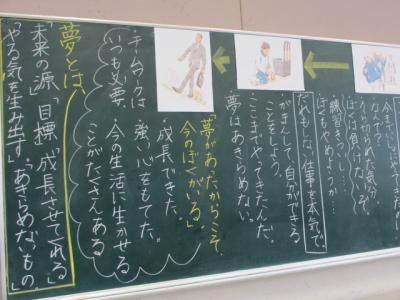 なんで？
あきらめた気分
ぼくは負けないぞ。
練習きつい‥‥
ぼくもやめようか‥‥
だれもない仕事を本気で。
がまんして、自分ができる
ことをしよう。
ここまでやってきたんだ。
夢はあきらめない。
「夢があったからこそ、
今のぼくがいる」
・成長できた。
・強い心をもてた。
・今の生活に生かせる
ことがたくさんある
・チームワークは
いつも必要
夢とは、
「未来の源」「目標」「成長させてくれる」
「やる気を生み出す」「あきらめないもの」